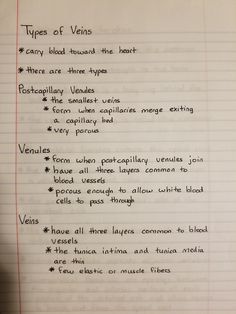 Types of Veins
* carry blood toward the heart
* there are three types
Postcapillary Venules
* the smallest veins
* form when capillaries merge exiting
a capillary bed
* very porous
Venules
* form when postcapillary venules join
* have all three layers common to
blood vessels
* porous enough to allow white blood
cells to pass through
Veins
* have all three layers common to blood
vessels
* the tunica intima and tunica media
are thin
* few elastic or muscle fibers